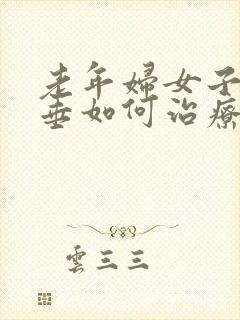 老年婦女子
垂如何治療
雲三三